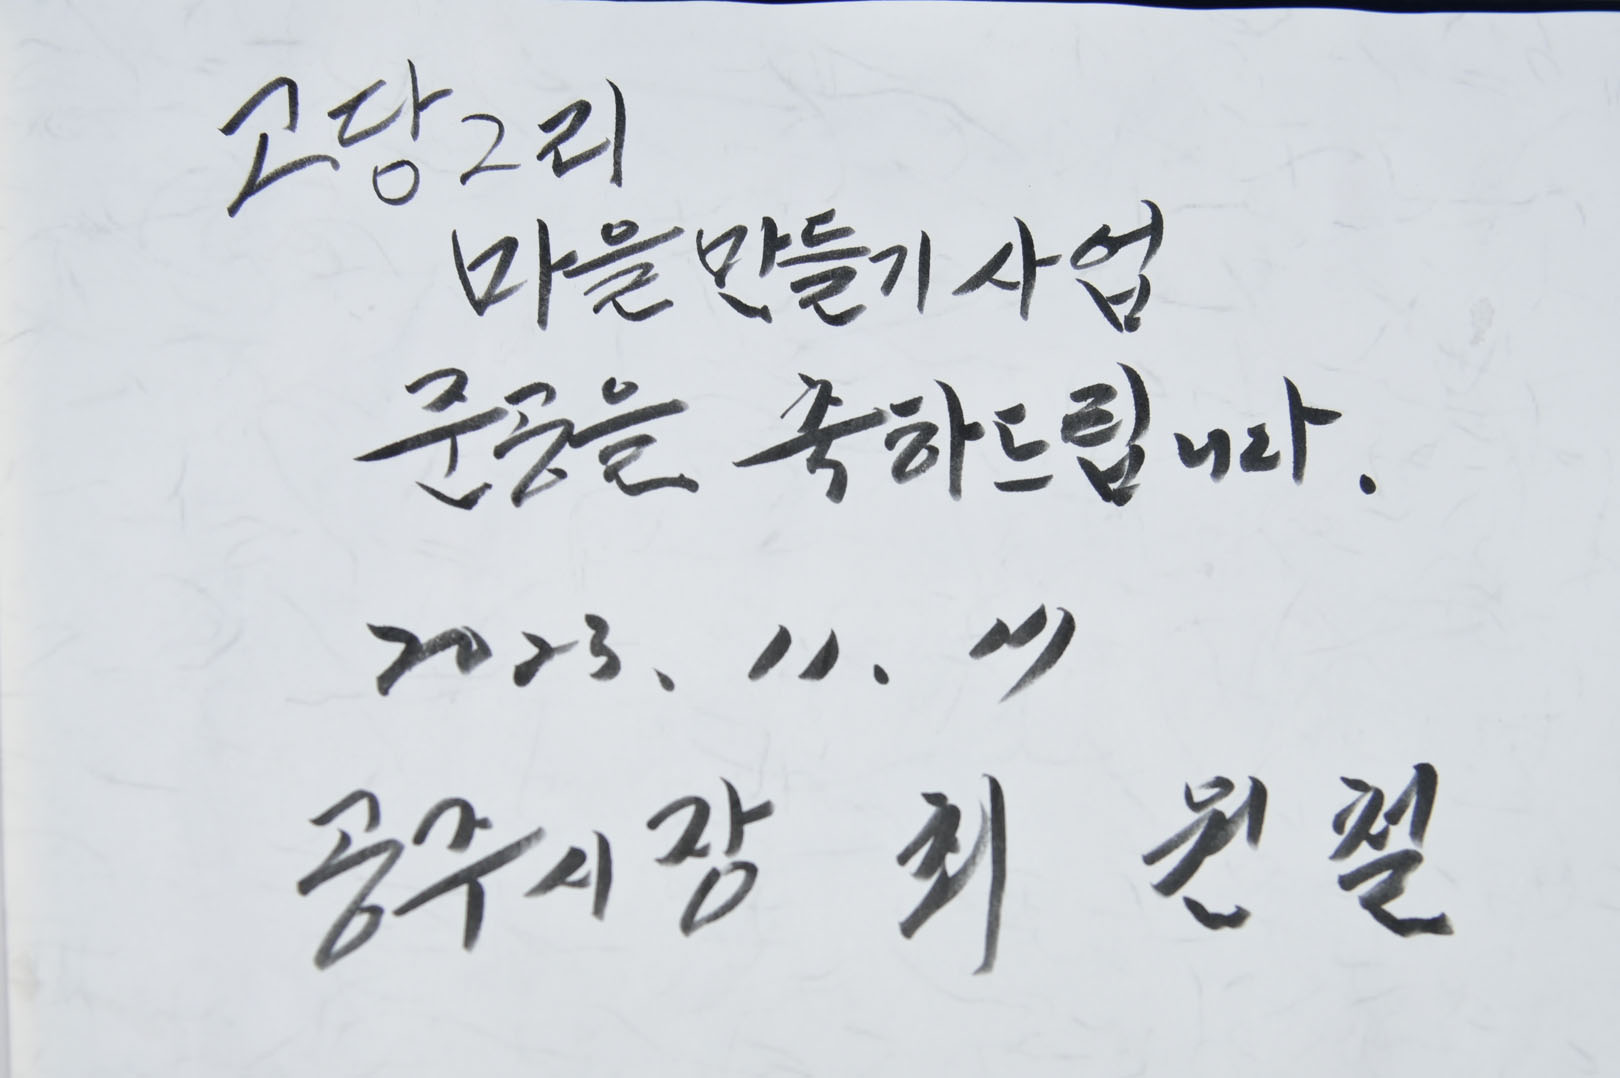 고당2리
마을만들기사업
준공을 축하드립니다.
2023. 11.
공주시장 최 원 철